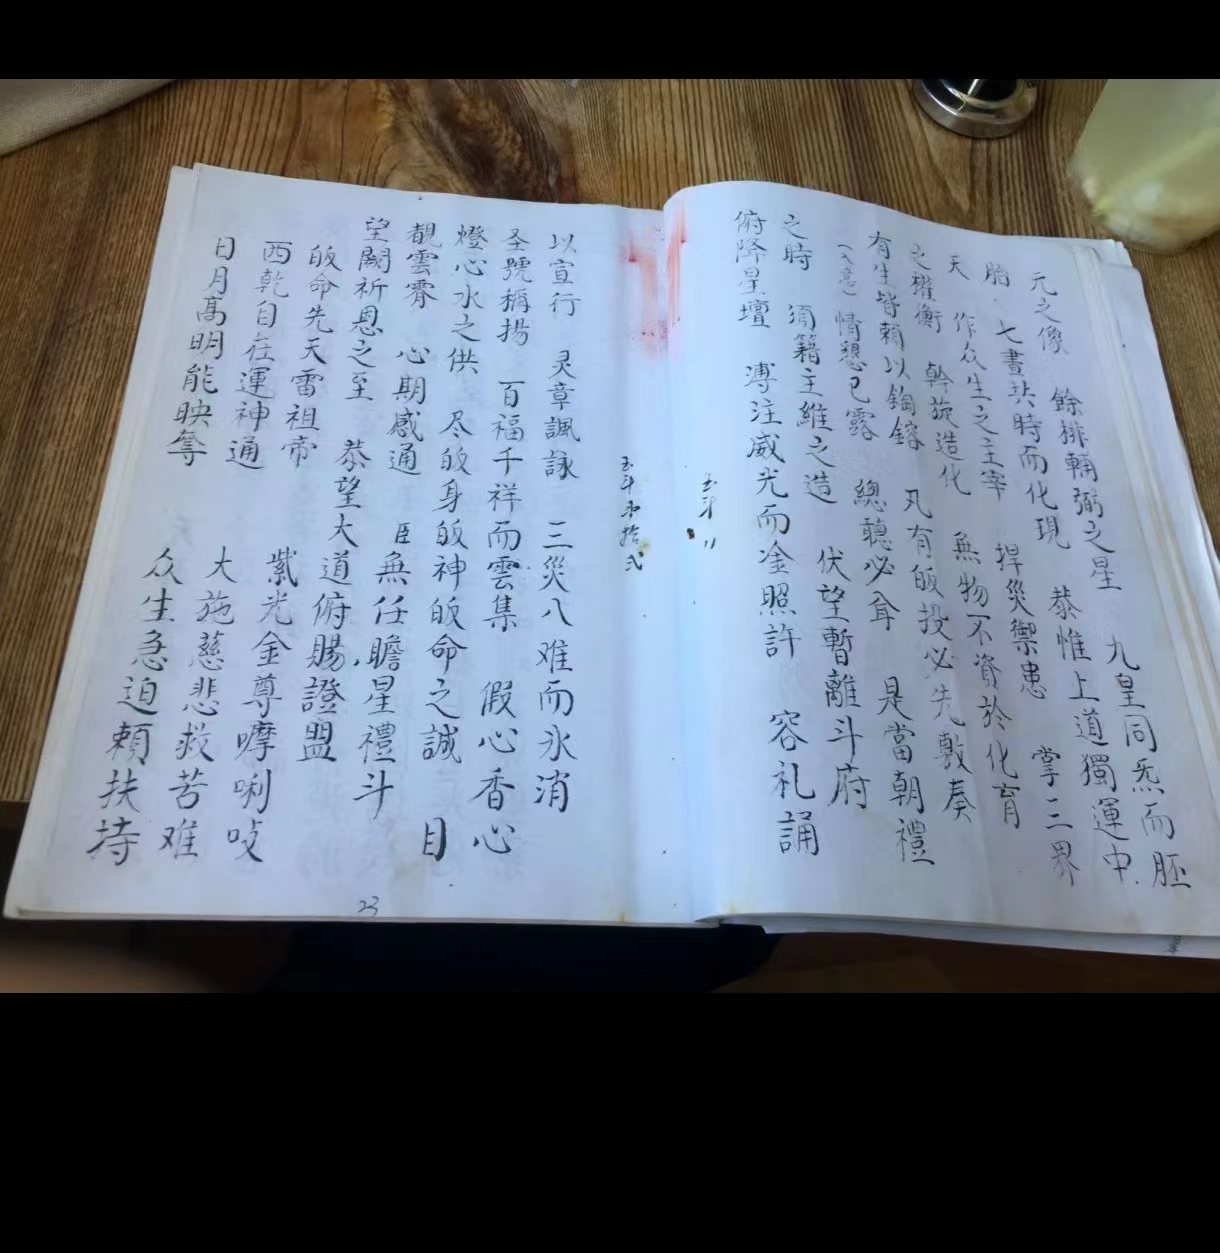 元之像 餘排輔弼之星 九皇同炁而胚
胎 七晝共時而化現 恭惟上道獨運中
天 作众生之主宰 捍災禦患 掌三界
之權衡 斡旋造化 無物不資於化育
有生皆賴以鈞鎔 凡有皈投必先敷奏
(入意) 情懇已露 總聽必耷 是當朝禮
之時 須籍主維之造 伏望暫離斗府
俯降星壇 溥注威光而淦照許 容礼誦
玉斗 11
玉斗 拾弍
以宣行 灵章諷詠 三災八难而氷消
圣號稱揚 百福千祥而雲集 假心香心
燈心水之供 尽皈身皈神皈命之誠 目
觀雲霄 心期感通 臣無任瞻星禮斗
望闕祈恩之至 恭望大道俯賜證盟
皈命先天雷祖帝 紫光金尊嘜唎吱
西乾自在運神通 大施慈悲救苦难
日月高明能映奪 众生急迫頼扶持
23